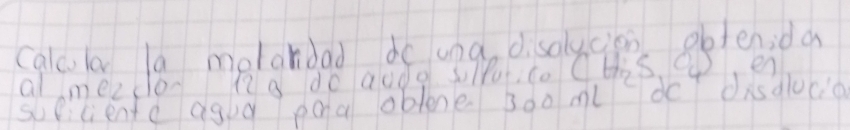 Calcular la molaridad de una disolución obtenida
al mezclar 12 g de acido sulfurico (H2SO4) en
suficiente agua para obtene 300 ml de disolucio